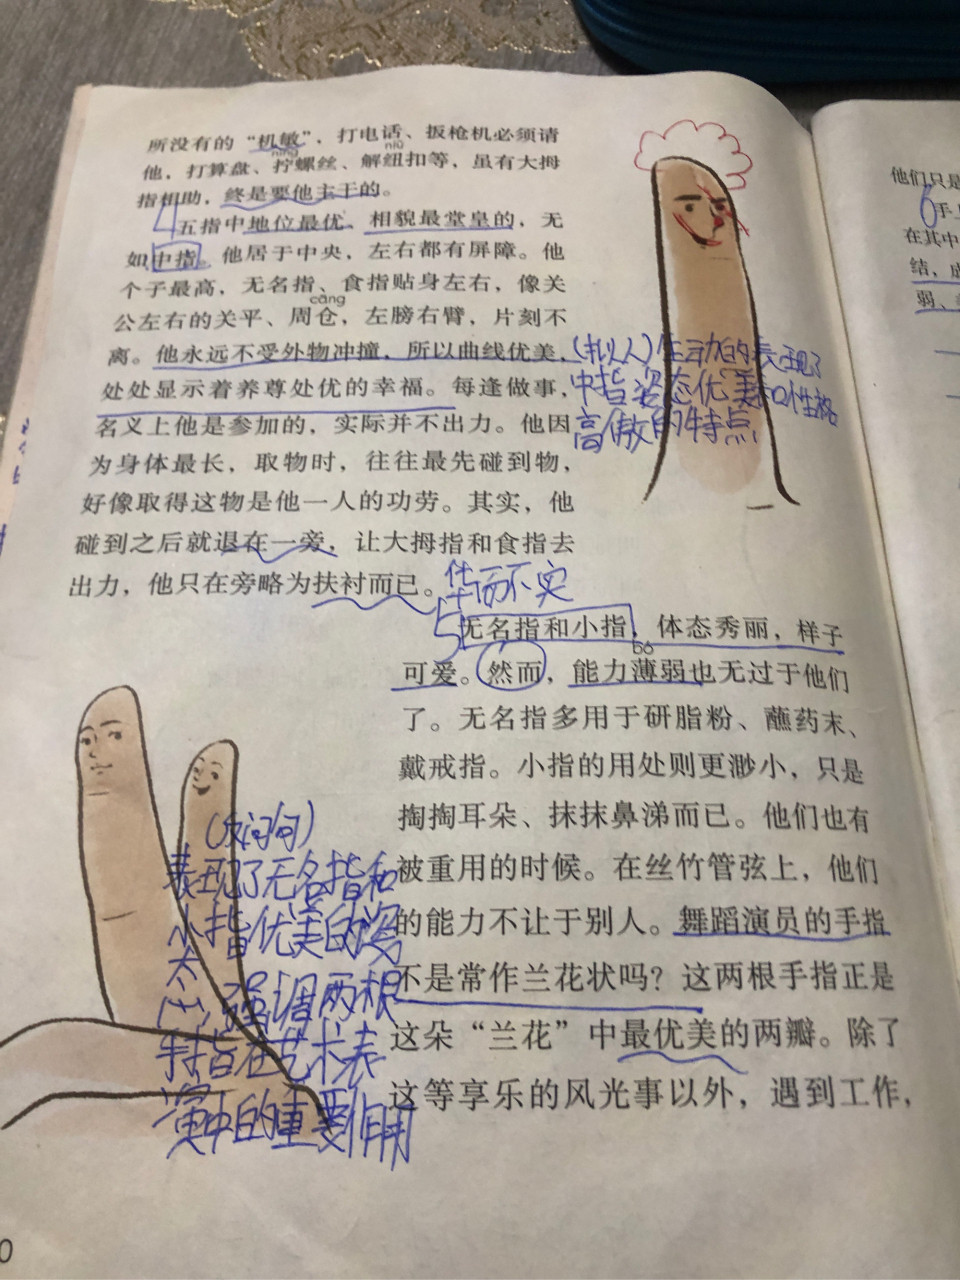 所没有的“机敏”，打电话、扳枪机必须请
níng niǔ
他，打算盘、拧螺丝、解纽扣等，虽有大拇
指相助，终是要他主干的。
4 五指中地位最优、相貌最堂皇的，无
如中指。他居于中央，左右都有屏障。他
个子最高，无名指、食指贴身左右，像关
cāng
公左右的关平、周仓，左膀右臂，片刻不
离。他永远不受外物冲撞，所以曲线优美，
处处显示着养尊处优的幸福。每逢做事，
名义上他是参加的，实际并不出力。他因
为身体最长，取物时，往往最先碰到物，
好像取得这物是他一人的功劳。其实，他
碰到之后就退在一旁，让大拇指和食指去
出力，他只在旁略为扶衬而已。华而不实
(拟人)生动的表现了
中指姿态优美和性格
高傲的特点
5 无名指和小指，体态秀丽，样子
bó
可爱。然而，能力薄弱也无过于他们
了。无名指多用于研脂粉、蘸药末、
戴戒指。小指的用处则更渺小，只是
掏掏耳朵、抹抹鼻涕而已。他们也有
被重用的时候。在丝竹管弦上，他们
的能力不让于别人。舞蹈演员的手指
不是常作兰花状吗？这两根手指正是
这朵“兰花”中最优美的两瓣。除了
这等享乐的风光事以外，遇到工作，
(反问句)
表现了无名指和
小指优美的姿
态，强调两根
手指在艺术表
演中的重要作用
0
他们只是
6 手上
在其中
结，成
弱、